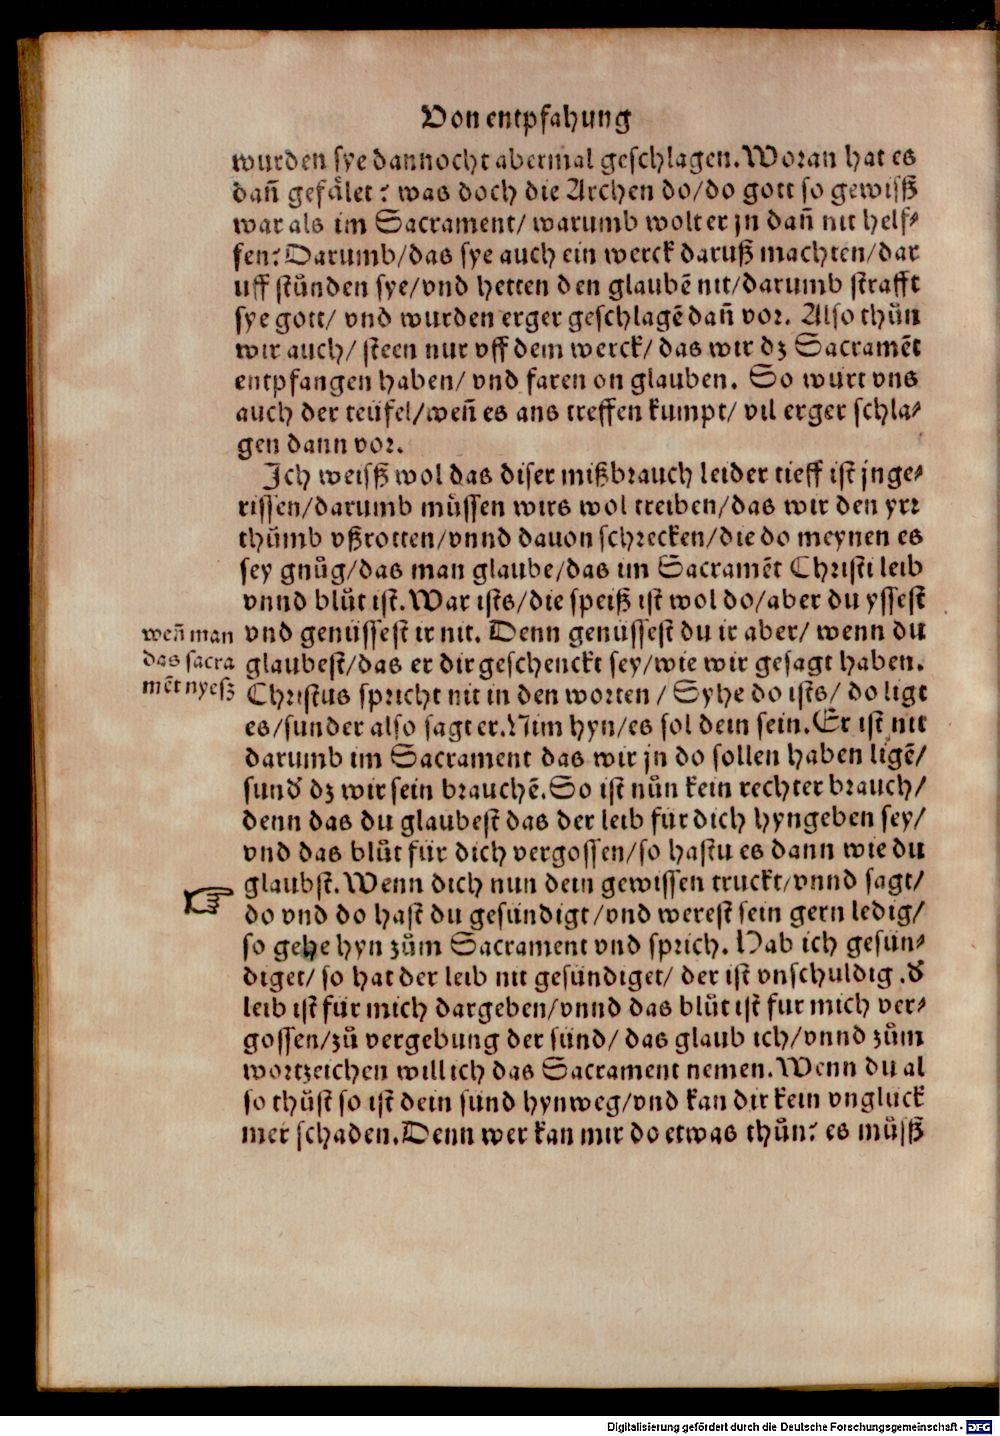 Von entpfahung
wurden sye dannocht abermal geschlagen. Woran hat es
dañ gefälet? was doch die Archen do/do gott so gewisß
war als im Sacrament/ warumb wolt er jn dañ nit helf⸗
fen? Darumb/das sye auch ein werck daruß machten/dar
uff stůnden sye/vnd hetten den glaubẽ nit/darumb strafft
sye gott/ vnd wurden erger geschlagẽ dañ vor. Also thůn
wir auch/ steen nur vff dem werck/ das wir dz Sacramẽt
entpfangen haben/ vnd faren on glauben. So wurt vns
auch der teüfel/weñ es ans treffen kumpt/ vil erger schla⸗
gen dann vor.
Ich weisß wol das diser mißbrauch leider tieff ist jnge⸗
rissen/darumb müssen wirs wol treiben/das wir den yrr
thůmb vßrotten/vnnd dauon schrecken/die do meynen es
sey gnůg/das man glaube/das im Sacramẽt Christi leib
vnnd blůt ist. War ists/die speiß ist wol do/aber du yssest
weñ man
das sacra
mẽt nyesz
vnd genüssest ir nit. Denn genüssest du ir aber/ wenn du
glaubest/das er dir geschenckt sey/wie wir gesagt haben.
Christus spricht nit in den worten / Syhe do ists/ do ligt
es/sunder also sagt er. Nim hyn/es sol dein sein. Er ist nit
darumb im Sacrament das wir jn do sollen haben ligẽ/
sunď dz wir sein brauchẽ. So ist nůn kein rechter brauch/
denn das du glaubest das der leib für dich hyngeben sey/
vnd das blůt für dich vergossen/so hastu es dann wie du
glaubst. Wenn dich nun dein gewissen truckt/vnnd sagt/
☞ do vnd do hast du gesündigt/vnd werest sein gern ledig/
so gehe hyn zům Sacrament vnd sprich. Hab ich gesün⸗
diget/ so hat der leib nit gesündiget/ der ist vnschuldig. ď
leib ist für mich dargeben/vnnd das blůt ist für mich ver⸗
gossen/zů vergebung der sünd/ das glaub ich/vnnd zům
wortzeichen will ich das Sacrament nemen. Wenn du al
so thůst so ist dein sünd hynweg/vnd kan dir kein vnglück
mer schaden. Denn wer kan mir do etwas thůn? es můsß
Digitalisierung gefördert durch die Deutsche Forschungsgemeinschaft - DFG